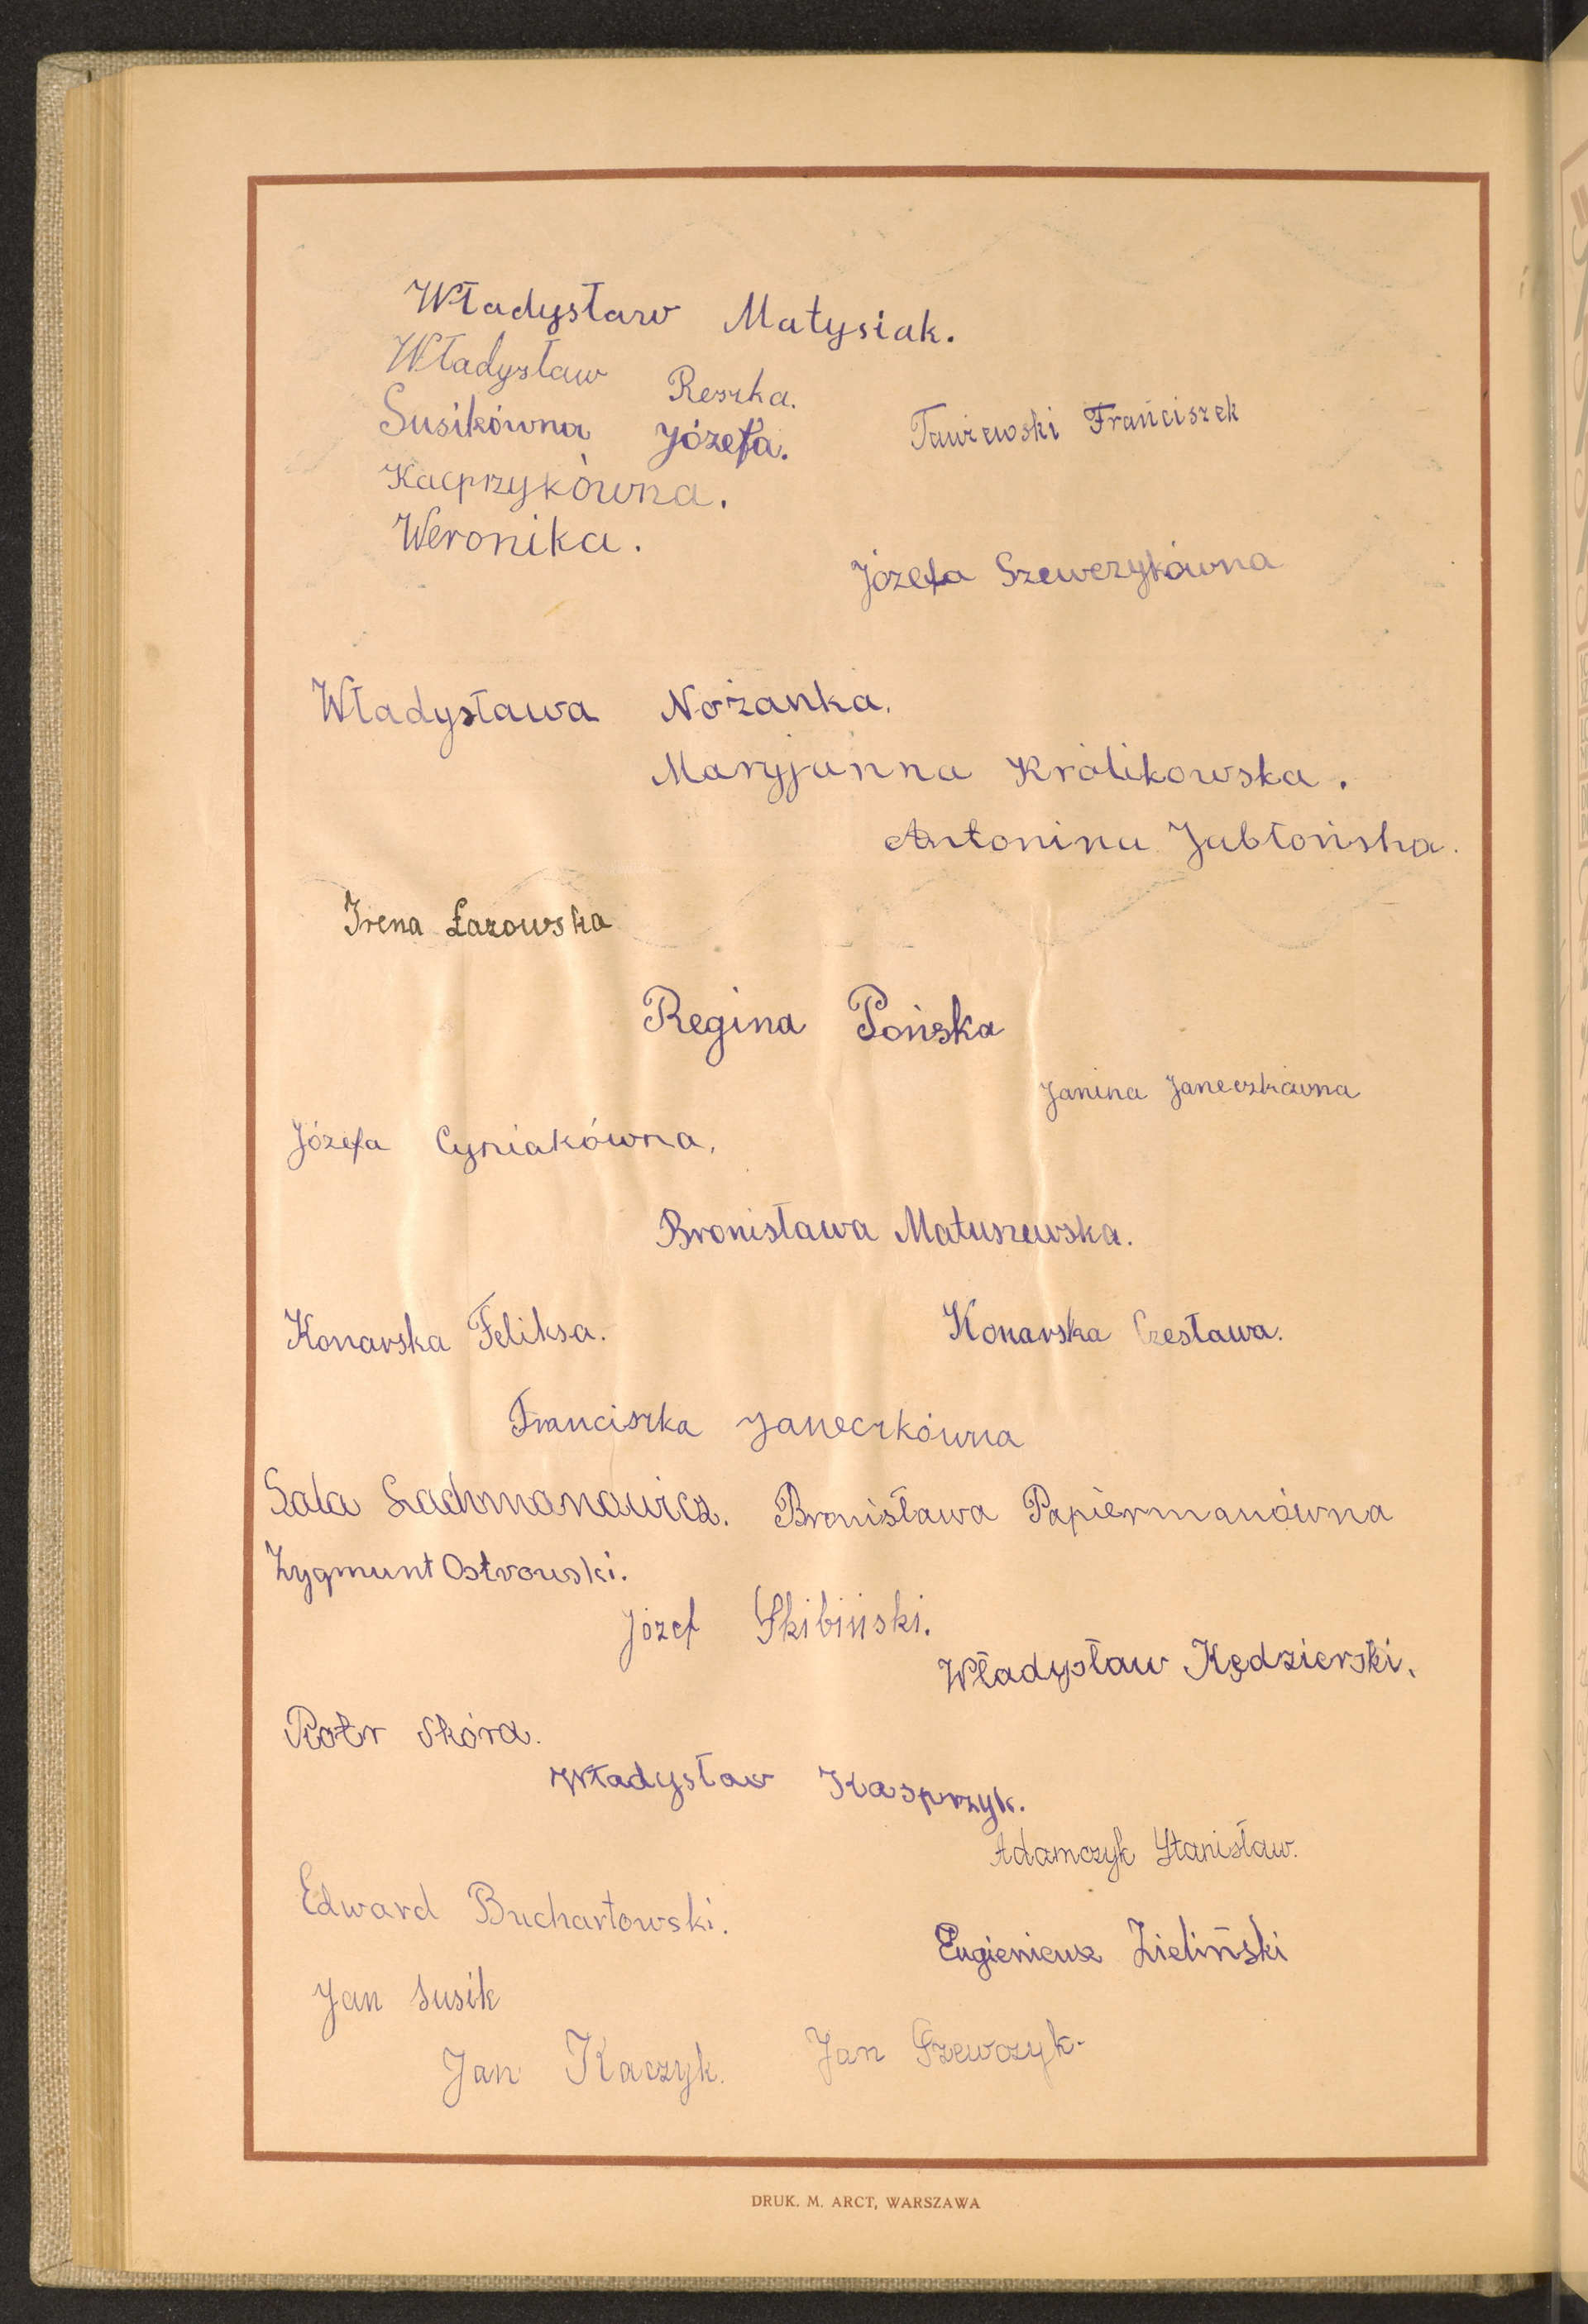 Władysław Matysiak.
Władysław Reszka.
Susikówna Józefa.
Tawżewski Franciszek
Kacprzykówna.
Weronika.
Józefa Szewczykówna
Władysława Nożanka.
Maryjanna Królikowska.
Antonina Jabłońska.
Irena Łazowska
Regina Pońska
Janina Janeczkówna
Józefa Cyniakówna.
Bronisława Matuszewska.
Konarska Feliksa. Konarska Czesława.
Franciszka Janeczkówna
Sala Lachmanowicz. Bronisława Papiermanówna
Zygmunt Ostrowski.
Józef Skibiński.
Władysław Kędzierski.
Piotr Skóra.
Władysław Kasprzyk.
Adamczyk Stanisław.
Edward Buchartowski.
Eugieniusz Zieliński
Jan Susik
Jan Kaczyk. Jan Szewczyk.
DRUK. M. ARCT, WARSZAWA